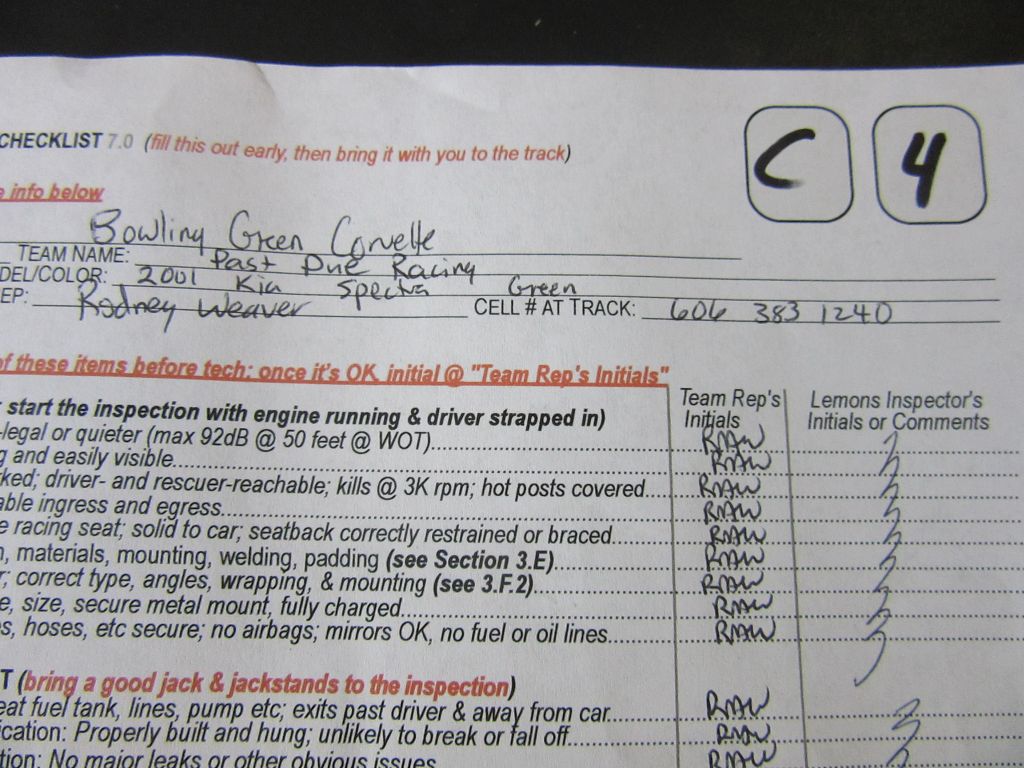 C 4
CHECKLIST 7.0 (fill this out early, then bring it with you to the track)
e info below
Bowling Green Corvette
TEAM NAME: Past Due Racing
DEL/COLOR: 2001 Kia Spectra Green
EP: Rodney Weaver CELL # AT TRACK: 606 383 1240
of these items before tech; once it's OK, initial @ "Team Rep's Initials"
Team Rep's Initials Lemons Inspector's Initials or Comments
start the inspection with engine running & driver strapped in)
-legal or quieter (max 92dB @ 50 feet @ WOT) RMW
g and easily visible RMW
ked; driver- and rescuer-reachable; kills @ 3K rpm; hot posts covered RMW
able ingress and egress RMW
e racing seat; solid to car; seatback correctly restrained or braced RMW
n, materials, mounting, welding, padding (see Section 3.E) RMW
r; correct type, angles, wrapping, & mounting (see 3.F.2) RMW
e, size, secure metal mount, fully charged RMW
s, hoses, etc secure; no airbags; mirrors OK, no fuel or oil lines RMW
T (bring a good jack & jackstands to the inspection)
eat fuel tank, lines, pump etc; exits past driver & away from car RMW
ication: Properly built and hung; unlikely to break or fall off RMW
tion: No major leaks or other obvious issues RMW